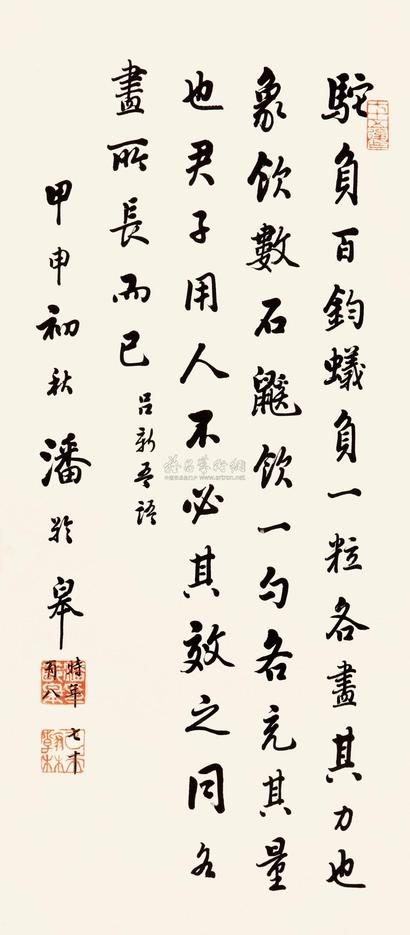 駝負百鈞蟻負一粒各盡其力也
象飲數石鼷飲一勺各充其量
也君子用人不必其效之同各
盡所長而已
呂新吾語
甲申初秋潘齡皋
時年七十
有八